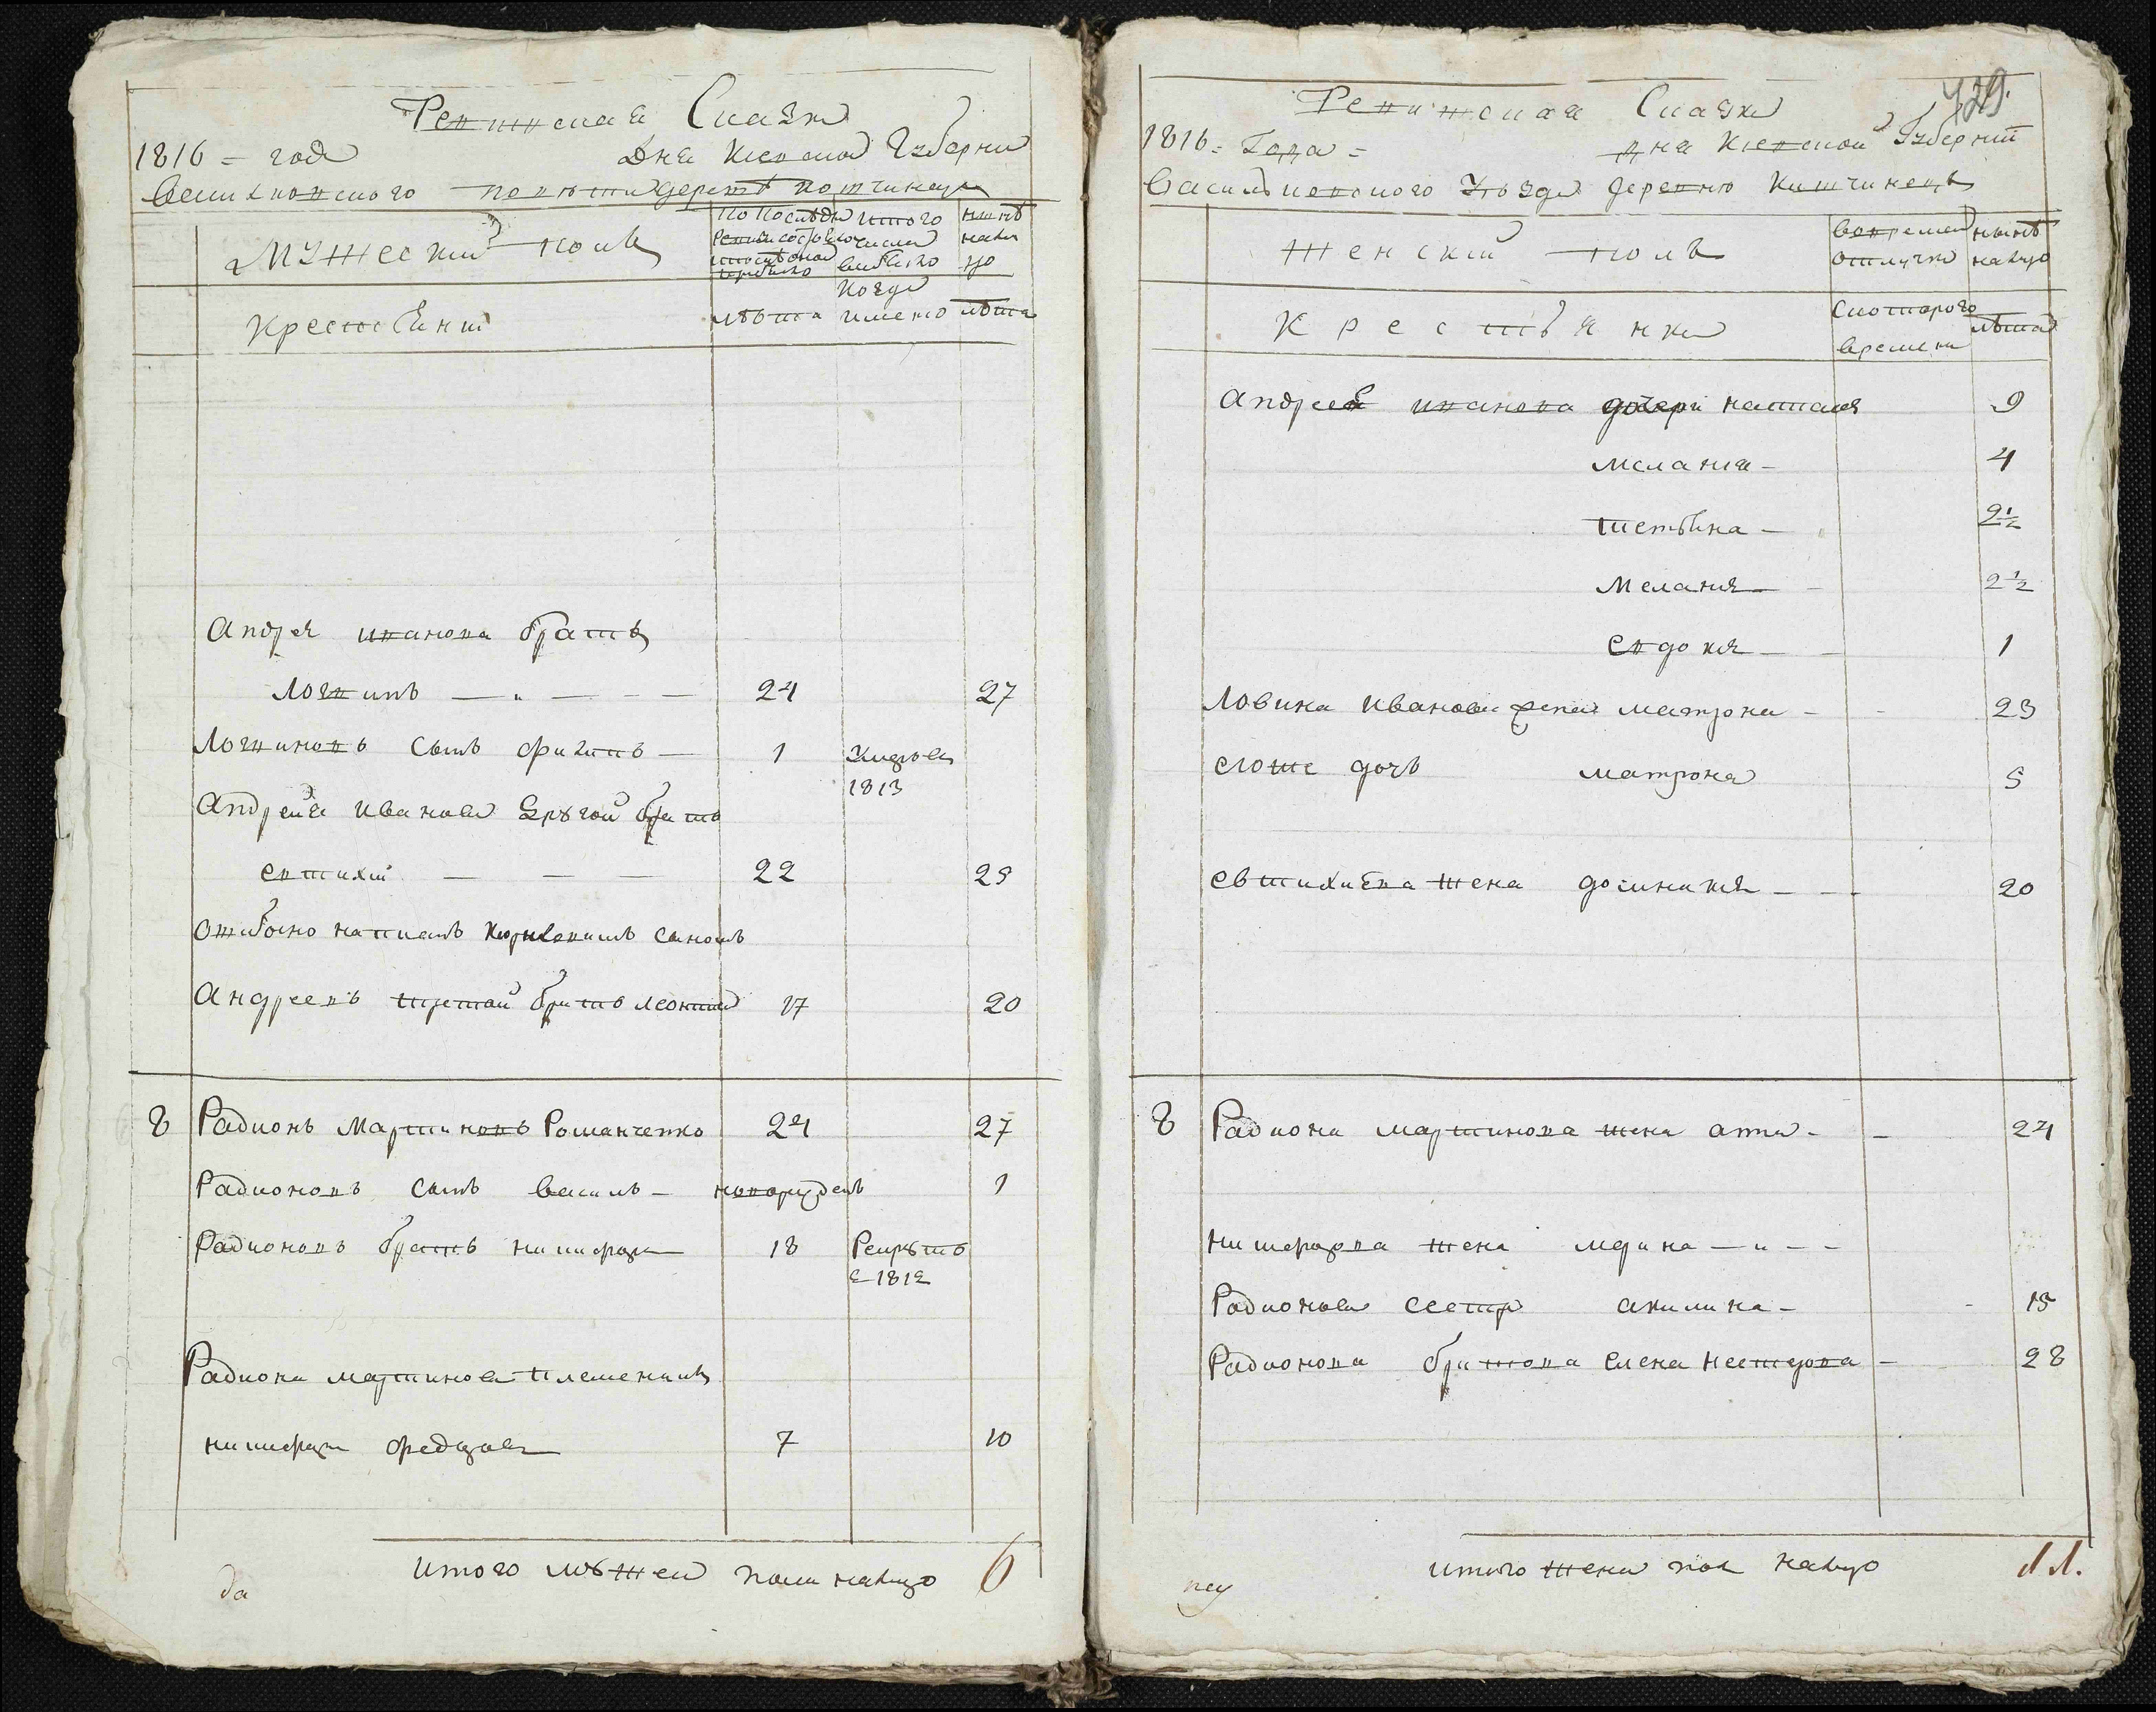 Ревизская Сказка
1816 = года Дня Киевской Губернии
Василковского повета деревне
Мужеский полъ
По последней
ревизии состояло
изъ того
числа
выбыло
ныне
на ли
цо
Крестьяне
лѣта
когда
именно
лѣта
Андрея иванова братъ
логвинъ 24 27
Логвиновъ сынъ филипъ 1 Умре въ
1813
Андрея Иванова другой братъ
евтихий 22 25
ошибочно написанъ сыномъ
Андреевъ третой братъ леонтий 17 20
8 Радионъ Мартиновъ Романченко 24 27
Радионовъ сынъ василь новорожденъ 1
Радионовъ братъ никифоръ 18 Рекрутъ
1812
Радиона мартинова племеникъ
никифоръ федоровъ 7 10
итого мужеска пола налицо 6
да
729.
Ревижская Сказка
1816: Года = дня Киевской Губернии
Василковского Уезда деревню Китчинецъ
Женский полъ
вовремен
отлучке
ныне
налицо
Крестьянки
с котораго
времени
лѣта
Андрея иванова дочери наталя 9
мелания 4
тетьяна 2½
Мелания 2½
евдокия 1
Ловина Иванова жена матрона 23
егоже дочь матрона 5
евтихиева жена доминикия 20
8 Радиона мартинова жена анна 24
никифорова жена марина
Радионова сестра акилина 15
Радионова братова елена нестерова 28
итого женска пол налицо 11.